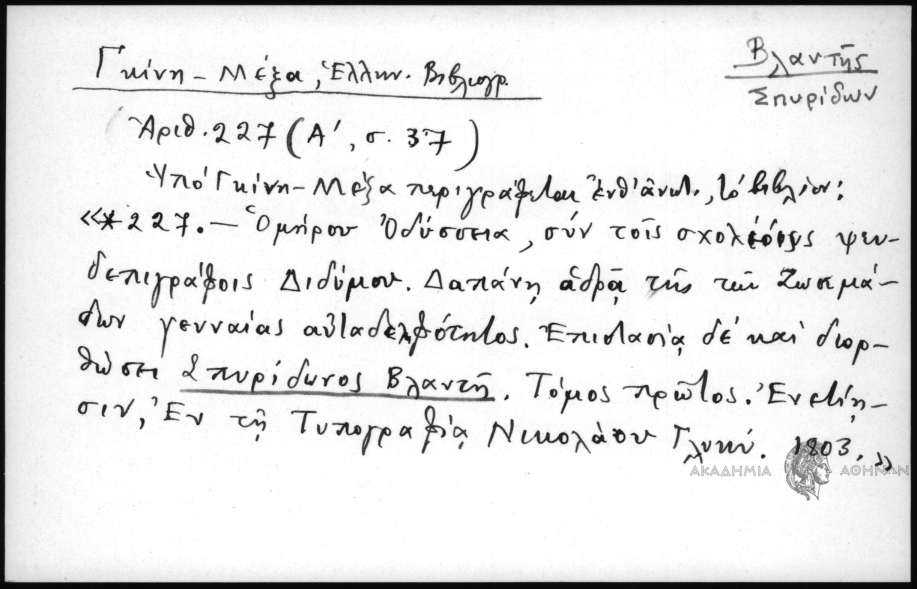 Γκίνη - Μέξα, Ἑλλην. Βιβλιογρ.
Βλαντῆς
Σπυρίδων
Ἀριθ. 227 (Α', σ. 37)
Ὑπό Γκίνη - Μέξα περιγράφεται ἐνθ' ἀνωτ., τό βιβλίον:
«*227. — Ὁμήρου Ὀδύσσεια, σύν τοῖς σχολίοις ψευ-
δεπιγράφοις Διδύμου. Δαπάνῃ ἁδρᾷ τῆς τῶν Ζωσιμά-
δων γενναίας αὐταδελφότητος. Ἐπιστασίᾳ δέ καί διορ-
θώσει Σπυρίδωνος Βλαντῆ. Τόμος πρῶτος. Ἐνετίῃ-
σιν, Ἐν τῇ Τυπογραφίᾳ Νικολάου Γλυκύ. 1803.»
ΑΚΑΔΗΜΙΑ ΑΘΗΝΩΝ